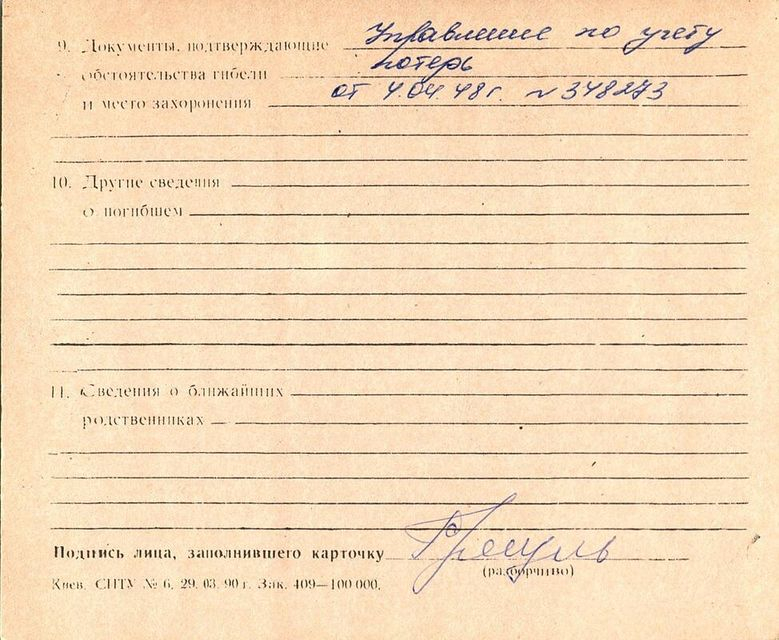 9. Документы, подтверждающие Управление по учету
обстоятельства гибели потерь
и место захоронения от 4.04.48г. N 348273
10. Другие сведения
о погибшем
11. Сведения о ближайших
родственниках
Подпись лица, заполнившего карточку
(разборчиво)
Киев. СПТУ № 6. 29. 03. 90 г. Зак. 409—100 000.